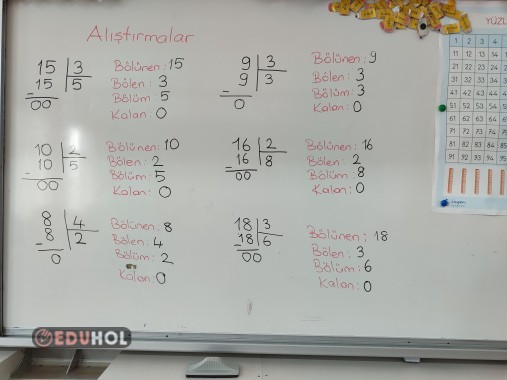 Alıştırmalar
15 | 3
- 15 | 5
00
Bölünen: 15
Bölen: 3
Bölüm 5
Kalan: 0
9 | 3
- 9 | 3
0
Bölünen: 9
Bölen: 3
Bölüm: 3
Kalan: 0
10 | 2
- 10 | 5
00
Bölünen: 10
Bölen: 2
Bölüm: 5
Kalan: 0
16 | 2
- 16 | 8
00
Bölünen: 16
Bölen: 2
Bölüm: 8
Kalan: 0
8 | 4
- 8 | 2
0
Bölünen: 8
Bölen: 4
Bölüm: 2
Kalan: 0
18 | 3
- 18 | 6
00
Bölünen: 18
Bölen: 3
Bölüm: 6
Kalan: 0
YÜZL
1 2 3 4
11 12 13 14
21 22 23 24
31 32 33 34
41 42 43 44
51 52 53 54
61 62 63 64
71 72 73 74
81 82 83 84
91 92 93 94
EDUHOL